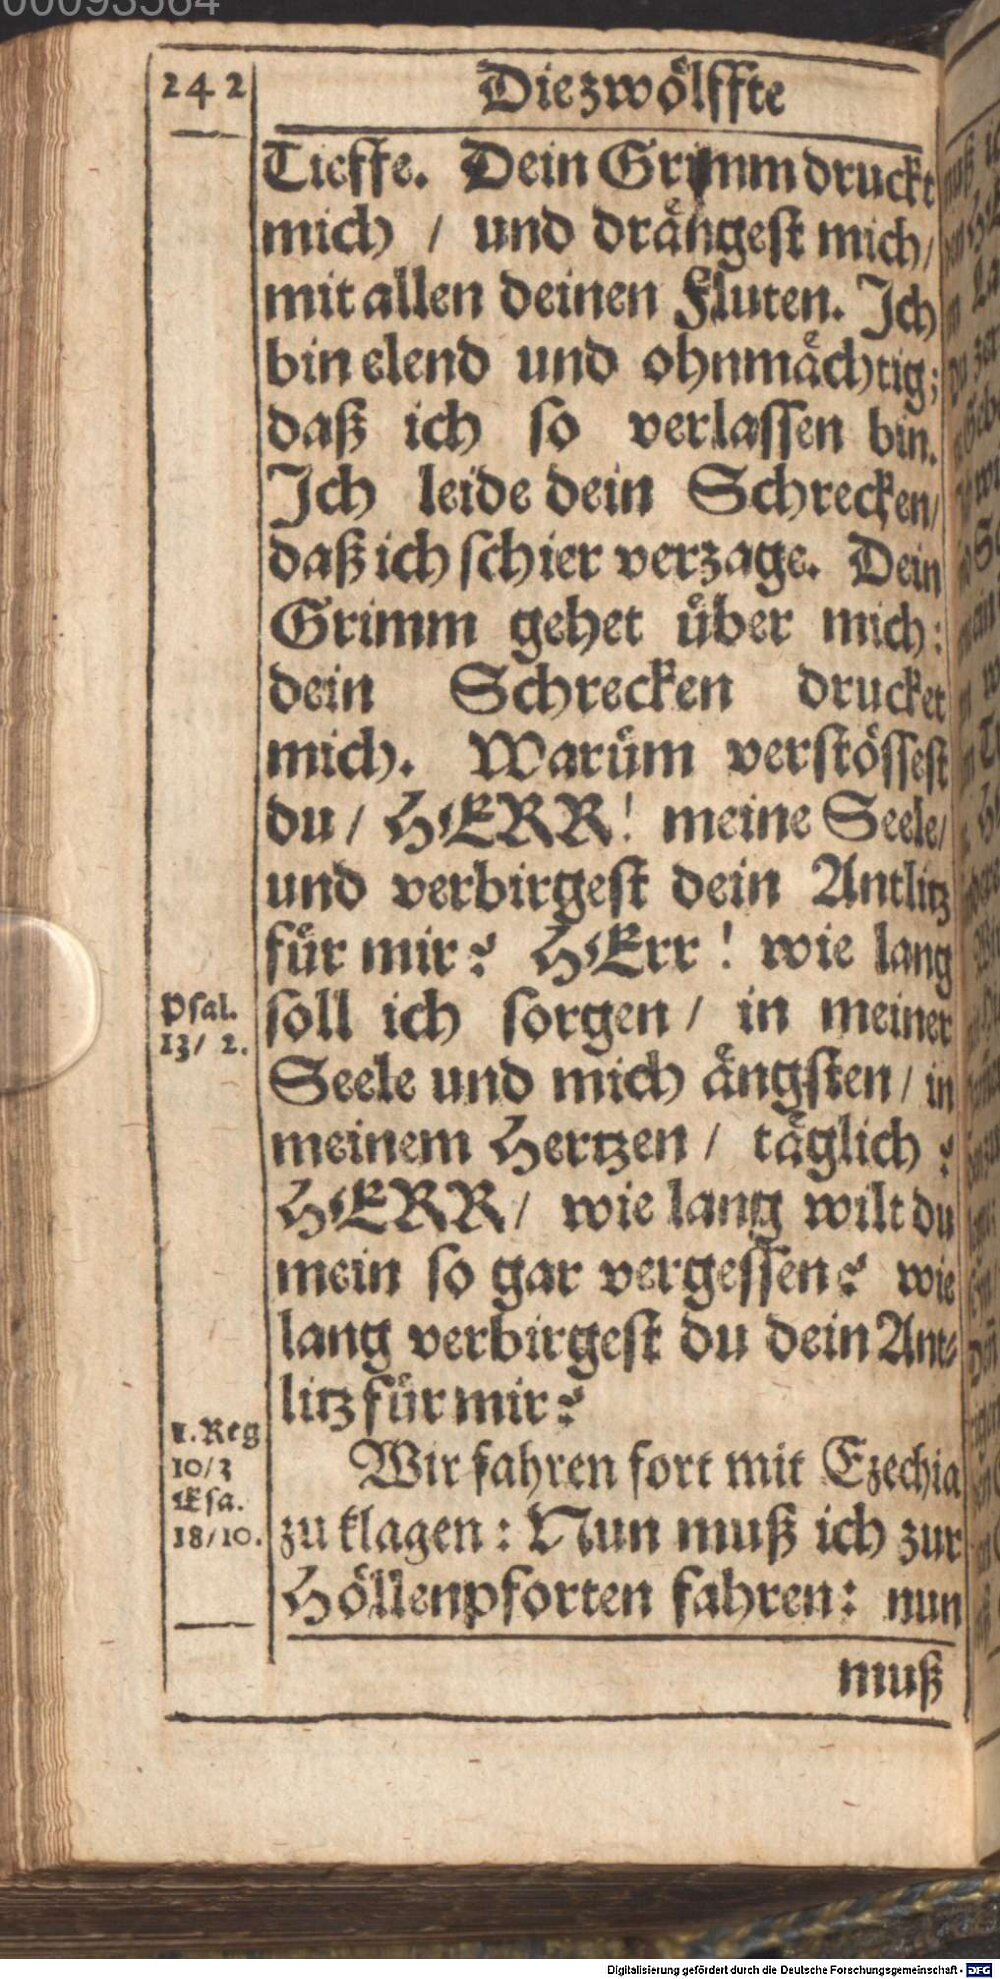 00093564
242
Die zwölffte
Tieffe. Dein Grimm druckt
mich / und drängest mich /
mit allen deinen Fluten. Ich
bin elend und ohnmächtig;
daß ich so verlassen bin.
Ich leide dein Schrecken /
daß ich schier verzage. Dein
Grimm gehet über mich:
dein Schrecken drucket
mich. Warüm verstössest
du / HERR! meine Seele /
und verbirgest dein Antlitz
für mir? HErr! wie lang
Psal.
13/ 2.
soll ich sorgen / in meiner
Seele und mich ängsten / in
meinem Hertzen / täglich?
HERR / wie lang wilt du
mein so gar vergessen? wie
lang verbirgest du dein Ant-
litz für mir?
1.Reg
10/3
Esa.
18/10.
Wir fahren fort mit Ezechia
zu klagen: Nun muß ich zur
Höllenpforten fahren: nun
muß
Digitalisierung gefördert durch die Deutsche Forschungsgemeinschaft - DFG